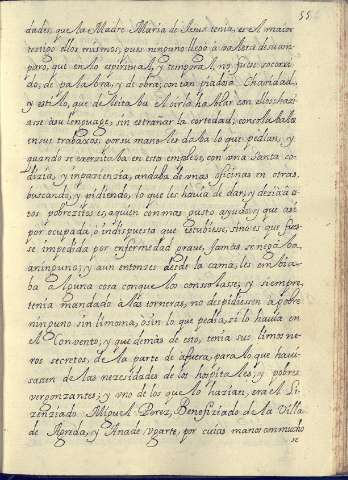 55
dades, que la Madre Maria de Jesus tenia, era el maior
testigo ellos mismos; pues ninguno llegò à valerse de su am-
paro, que en lo espiritual, y temporal, no fuese socorri-
do, de palabra, y de obra; con tan piadosa Charidad,
y estilo, que deleitaba el oirla hablar con ellos; hazi-
ase à su lenguage, sin estrañar la cortedad; consolabalos
en sus trabajos; por su mano les daba lo que pedian, y
quando se exersitaba en este empleo, con una santa co-
dizia, y inpaziensia, andaba de unas oficinas en otras
buscando, y pidiendo, lo que les havia de dar; y dezia à
esos pobrezitos es, aquien con mas gusto ayudo; y que asi
por ocupada, ò indispuesta que estubiese, sino es que fue-
se impedida por enfermedad grave, jamas se negaba
aninguno; y aun entonses desde la cama, les embia-
ba alguna cosa conque los consolase; y siempre
tenia mandado à las torneras, no despidiesen à pobre
ninguno sin limosna, ò sin lo que pedia, si lo havia en
el Convento; y que demas de esto, tenia sus limosne-
ros secretos, de la parte de afuera, para lo que havi-
sasen de las nezesidades de los hospitales, y pobres
vergonzantes; y uno de los que lo hazian, era el Li-
zenziado Miguel Perez, Benefiziado de la Villa
de Agreda, y Ana de Ugarte, por cuias manos con mucho
se